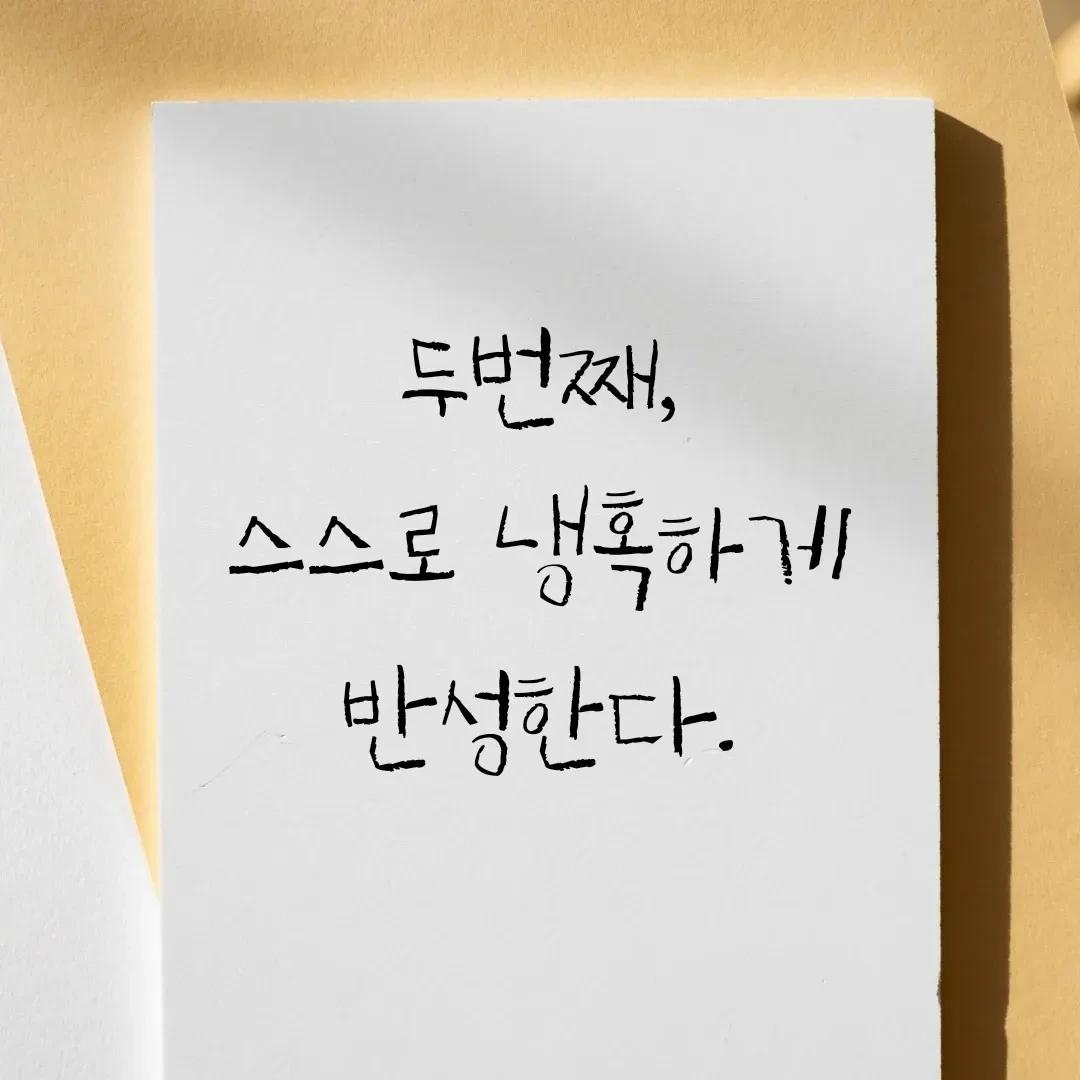 두번째,
스스로 냉혹하게
반성한다.